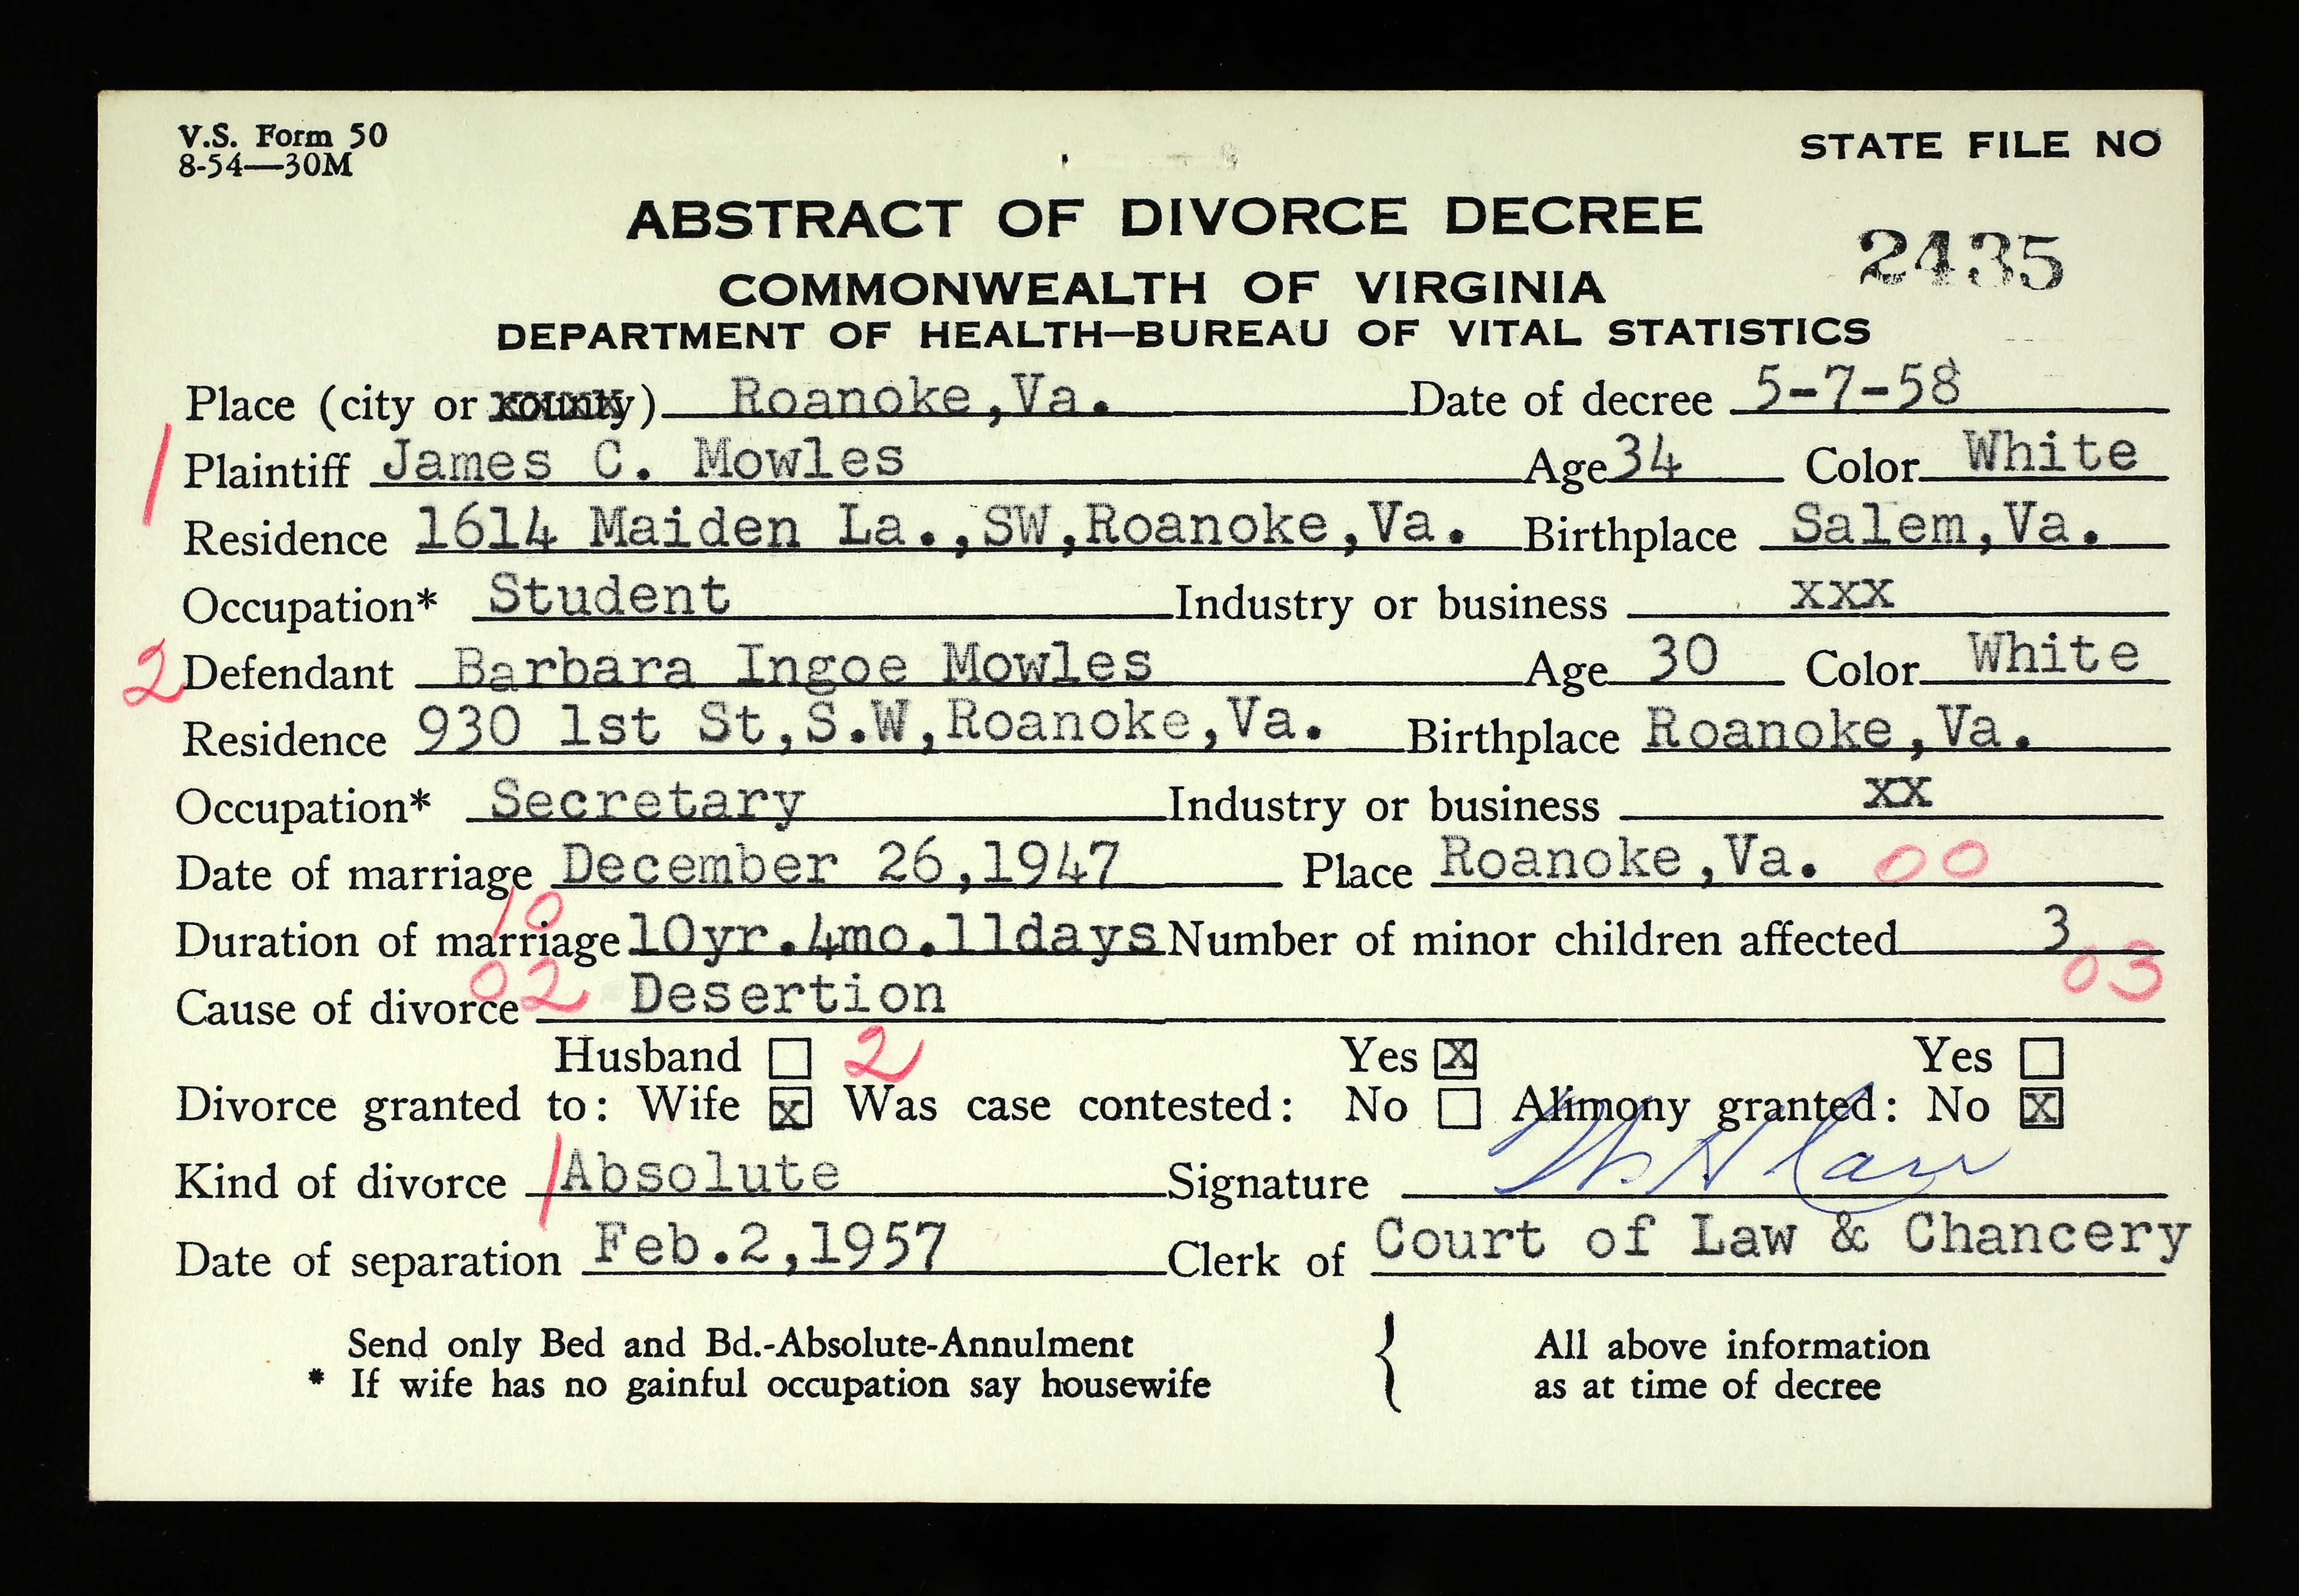 V.S. Form 50
8-54—30M
STATE FILE NO
ABSTRACT OF DIVORCE DECREE
2435
COMMONWEALTH OF VIRGINIA
DEPARTMENT OF HEALTH—BUREAU OF VITAL STATISTICS
Place (city or county) Roanoke,Va. Date of decree 5-7-58
1 Plaintiff James C. Mowles Age 34 Color White
Residence 1614 Maiden La.,SW,Roanoke,Va. Birthplace Salem,Va.
Occupation* Student Industry or business xxx
2 Defendant Barbara Ingoe Mowles Age 30 Color White
Residence 930 1st St,S.W,Roanoke,Va. Birthplace Roanoke,Va.
Occupation* Secretary Industry or business xx
Date of marriage December 26,1947 Place Roanoke,Va. 00
10
Duration of marriage 10yr.4mo.11days Number of minor children affected 3
02 03
Cause of divorce Desertion
Husband 2 Yes x Yes
Divorce granted to: Wife x Was case contested: No Alimony granted: No x
Kind of divorce 1 Absolute Signature
Date of separation Feb.2,1957 Clerk of Court of Law & Chancery
Send only Bed and Bd.-Absolute-Annulment { All above information
* If wife has no gainful occupation say housewife as at time of decree